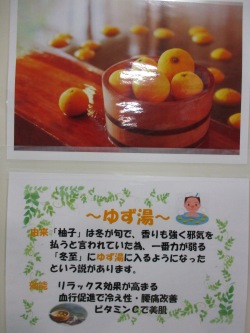 ～ゆず湯～
由来 「柚子」は冬が旬で、香りも強く邪気を
払うと言われていた為、一番力が弱る
「冬至」にゆず湯に入るようになった
という説があります。
効能 リラックス効果が高まる
血行促進で冷え性・腰痛改善
ビタミンCで美肌